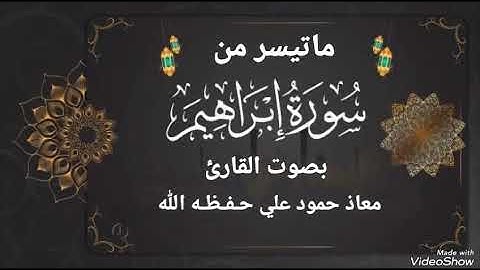 ماتيسر من
سُورَةُ إِبْرَاهِيمَ
بصوت القارئ
معاذ حمود علي حـفـظـه الله
Made with
VideoShow